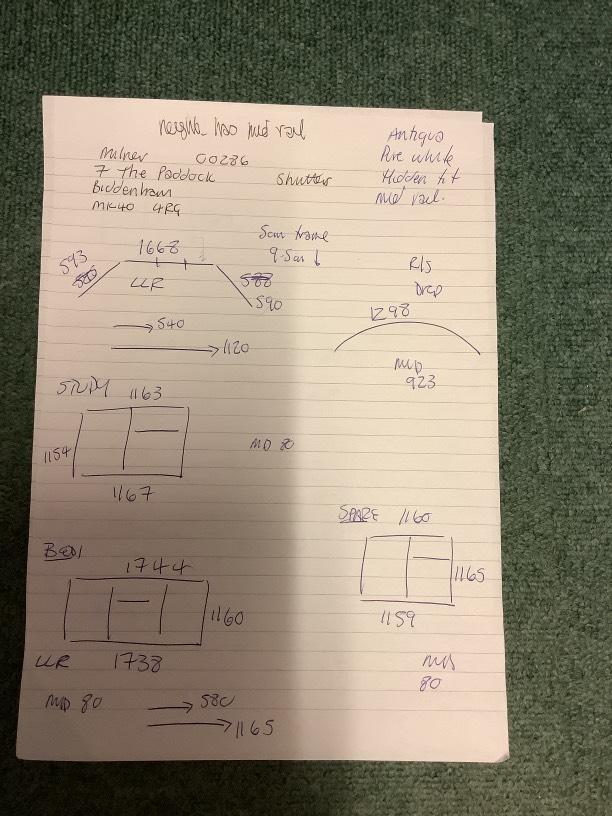 neighb has mid rail
Milner 00286
7 The Paddock
Biddenham
MK40 4RG
Shutter
Antigua
Pure white
Hidden tilt
Mid rail.
1668
593
LLR
588
590
5cm frame
9.5cm ↓
→ 540
→ 1120
R/S
Drop
1298
MID
923
STUDY 1163
1154
1167
MID 80
SPARE 1160
1165
1159
MID
80
Bed 1
1744
1160
LLR 1738
MID 80 → 580
→ 1165